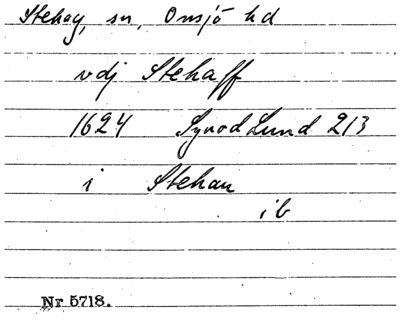 Stehag, sn, Onsjö hd
vdj Stehaff
1624 Synod Lund 213
i Stehau
ib
Nr 5718.